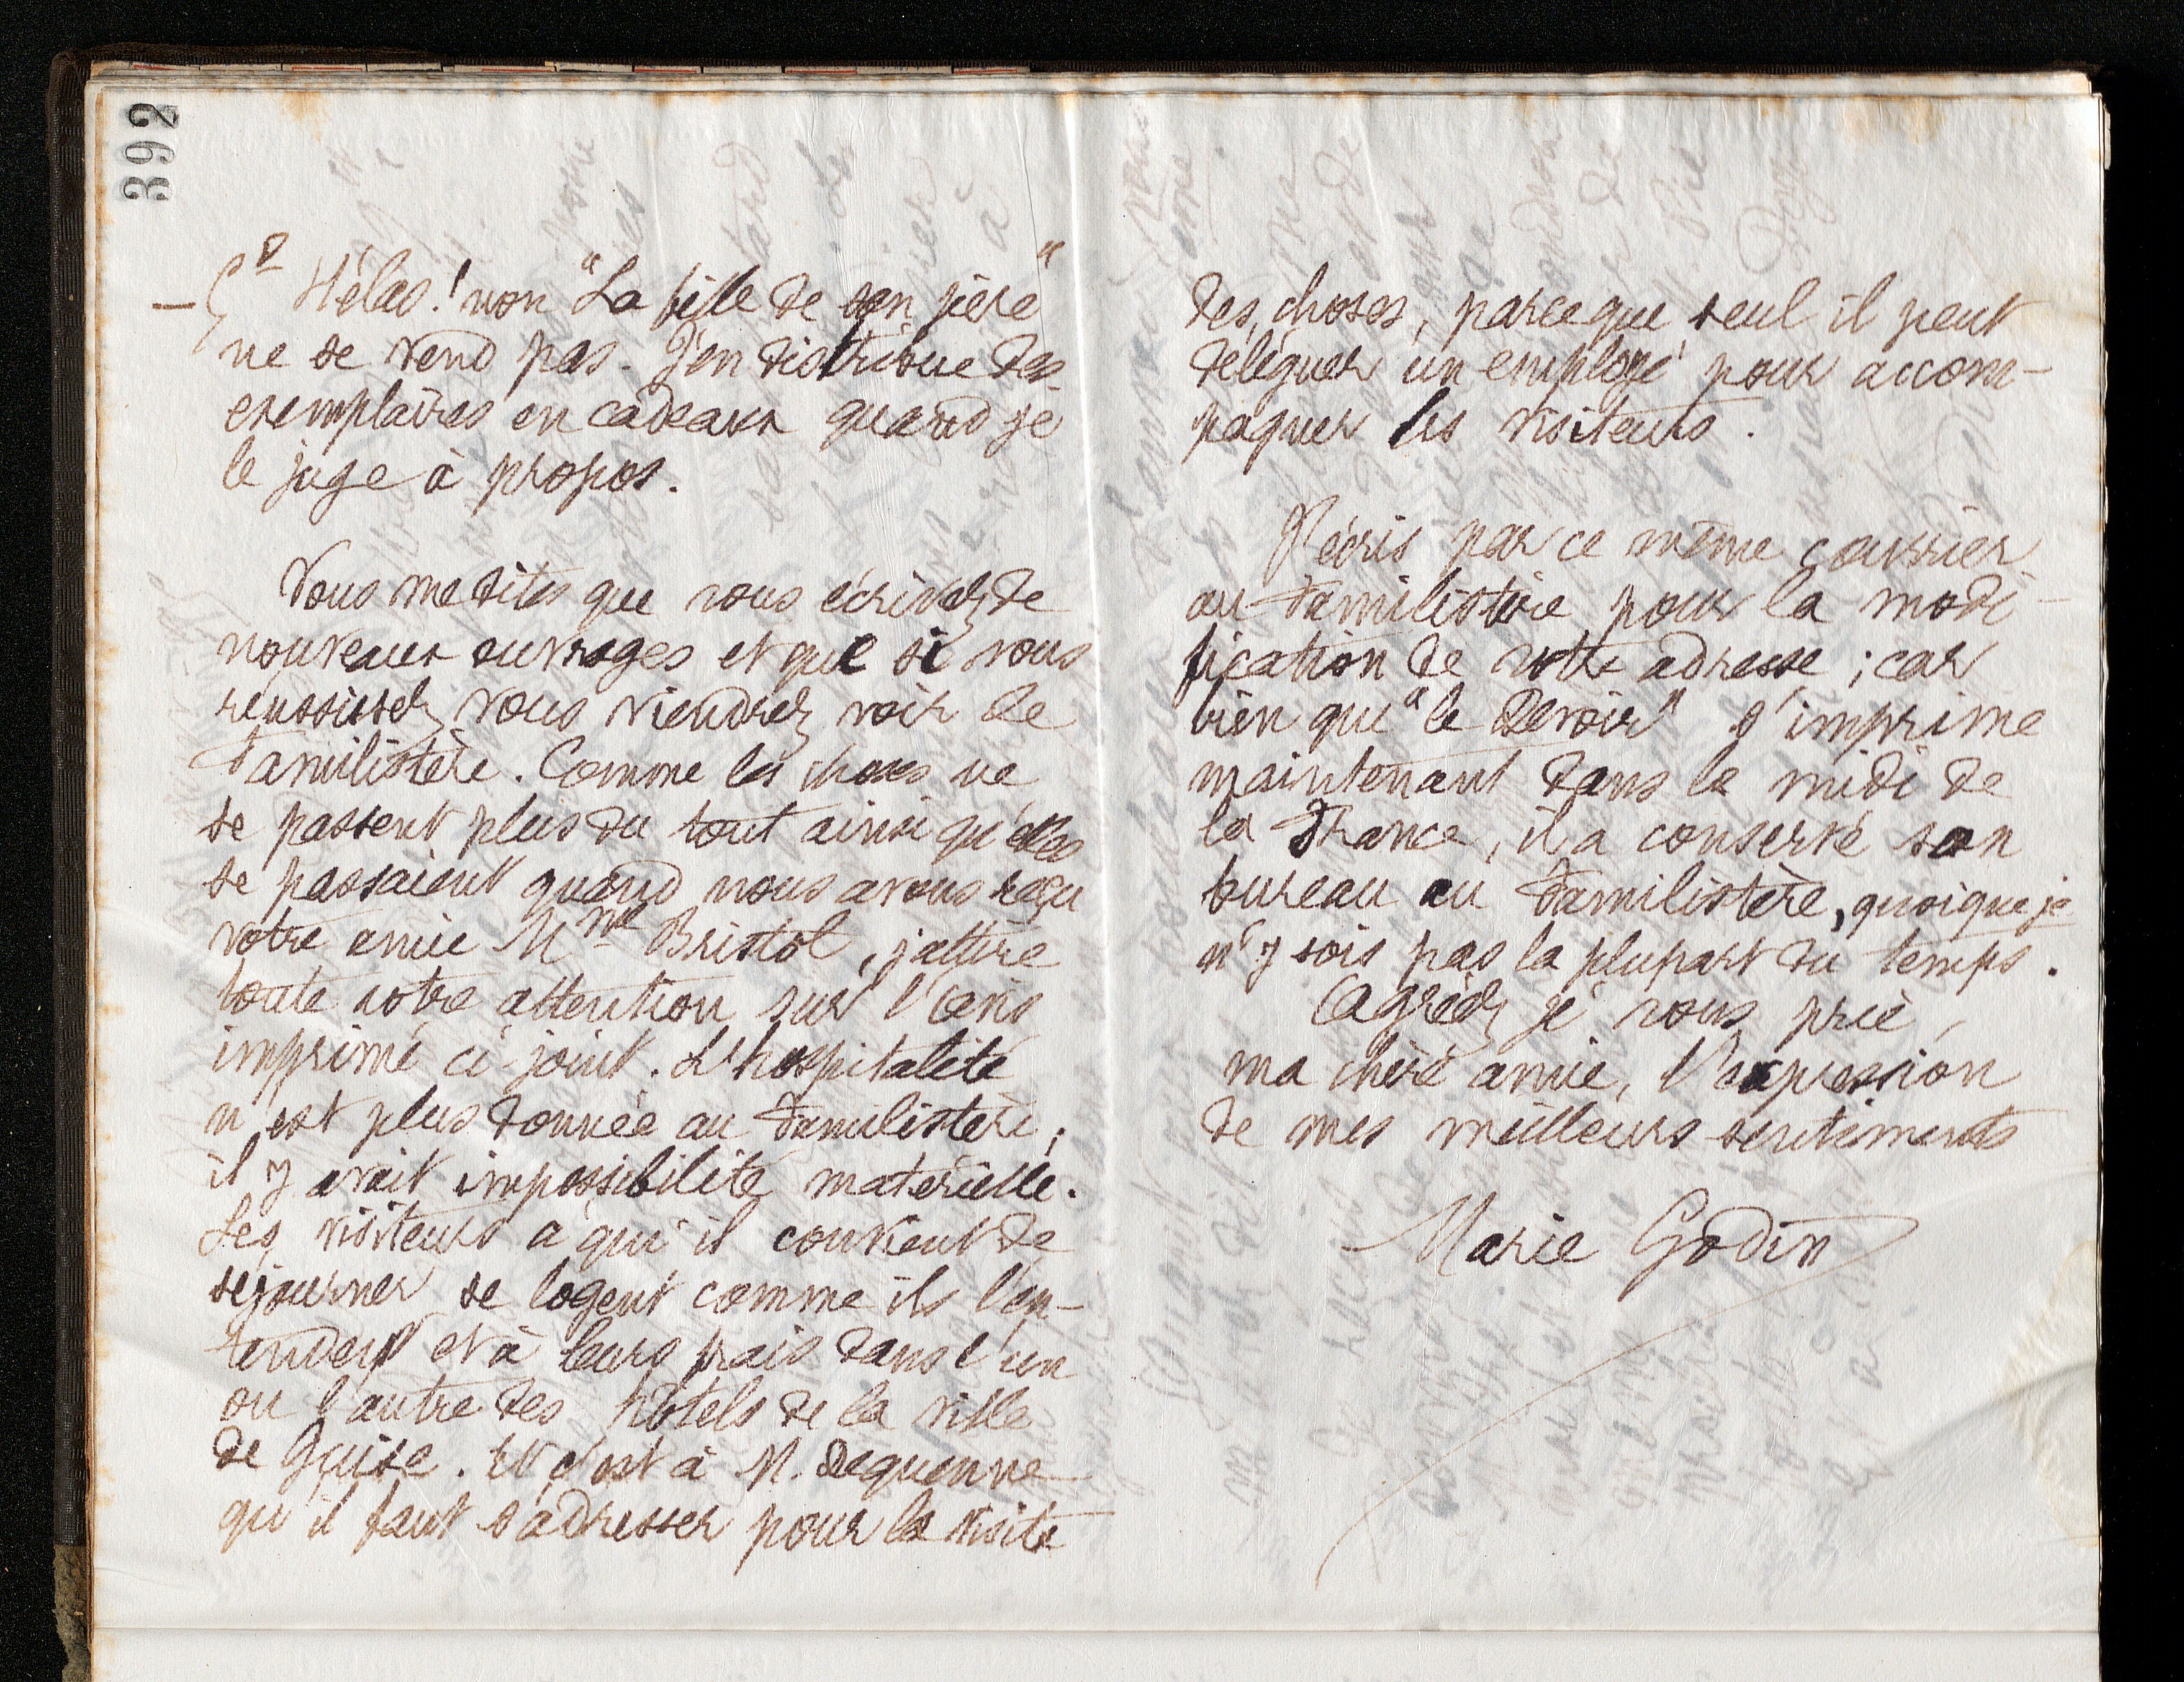 392
Hélas! non "La fille de son père"
ne se vend pas. J'en distribue des
exemplaires en cadeaux quand je
le juge à propos.
Vous me dites que vous écrivez de
nouveaux ouvrages et que si vous
réussissez vous viendrez voir le
Familistère. Comme les choses ne
se passent plus du tout ainsi qu'elles
se passaient quand nous avons reçu
votre amie Mme Bristol, j'attire
toute votre attention sur l'avis
imprimé ci-joint. L'hospitalité
n'est plus donnée au Familistère;
il y avait impossibilité matérielle.
Les visiteurs à qui il convient de
séjourner se logent comme ils l'en-
tendent et à leurs frais dans l'un
ou l'autre des hôtels de la ville
de Guise. Et c'est à M. Dequenne
qu'il faut s'adresser pour la visite
des choses, parce que seul il peut
déléguer un employé pour accom-
pagner les visiteurs.
J'écris par ce même courrier
au Familistère pour la modi-
fication de votre adresse; car
bien que "le Devoir" s'imprime
maintenant dans le midi de
la France, il a conservé son
bureau au Familistère, quoique je
n'y sois pas la plupart du temps.
Agréez je vous prie,
ma chère amie, l'expression
de mes meilleurs sentiments
Marie Godin